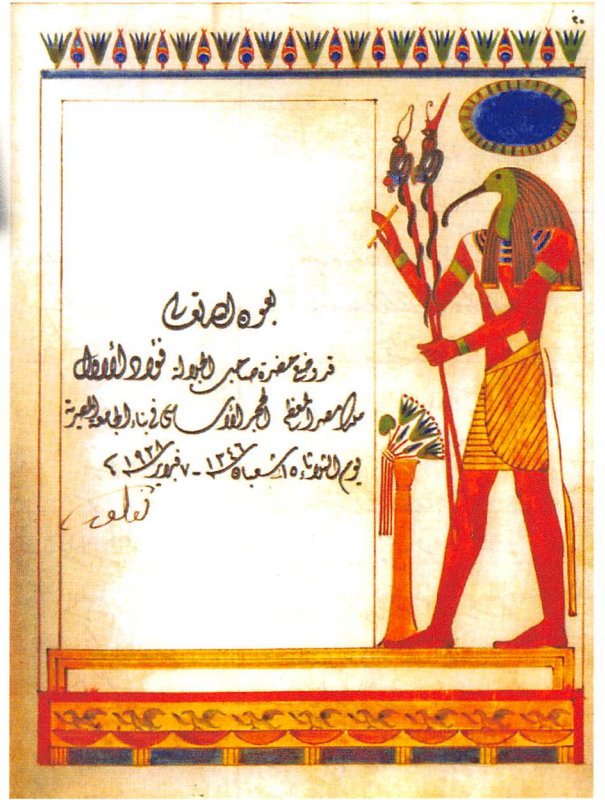 ٢٠
بعون الله تعالى
قد وضع حضرة صاحب الجلالة فؤاد الأول
ملك مصر المعظم الحجر الأساسى فى بناء الجامعة المصرية
يوم الثلاثاء ١٥ شعبان ١٣٤٦ - ٧ فبراير ١٩٢٨ م